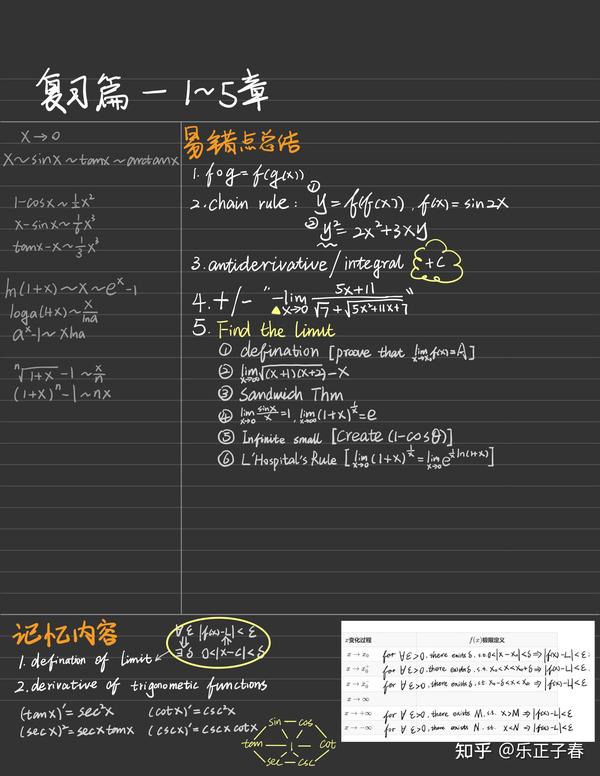 复习篇 — 1~5章
x→0
x~sinx~tanx~arctanx
1-cosx~½x²
x-sinx~⅙x³
tanx-x~⅓x³
ln(1+x)~x~eˣ-1
logₐ(1+x)~x/lna
aˣ-1~xlna
ⁿ√(1+x)-1~x/n
(1+x)ⁿ-1~nx
易错点总结
1. fog=f(g(x))
2. chain rule: ① y=f(f(x)), f(x)=sin2x
② y²=2x²+3xy
3. antiderivative/integral +C
4. +/- "-lim x→0 (5x+11)/(√7+√(5x²+11x+7))"
5. Find the limit
① defination [prove that lim x→x₀ f(x)=A]
② lim x→∞ √((x+1)(x+2))-x
③ Sandwich Thm
④ lim x→0 sinx/x=1, lim x→∞ (1+x)^(1/x)=e
⑤ Infinite small [Create (1-cosθ)]
⑥ L'Hospital's Rule [lim x→0 (1+x)^(1/x)=lim x→0 e^(1/x ln(1+x))]
记忆内容
∀ε |f(x)-L|<ε
∃δ 0<|x-c|<δ
1. defination of limit
2. derivative of trigonometic functions
(tanx)'=sec²x (cotx)'=csc²x
(secx)'=secxtanx (cscx)'=cscxcotx
sin cos
tan 1 cot
sec csc
x变化过程 f(x)极限定义
x→x₀ for ∀ε>0, there exists δ, s.t. 0<|x-x₀|<δ ⇒ |f(x)-L|<ε
x→x₀⁺ for ∀ε>0, there exists δ, s.t. x₀<x<x₀+δ ⇒ |f(x)-L|<ε
x→x₀⁻ for ∀ε>0, there exists δ, s.t. x₀-δ<x<x₀ ⇒ |f(x)-L|<ε
x→∞
x→+∞ for ∀ε>0, there exists M, s.t. x>M ⇒ |f(x)-L|<ε
x→-∞ for ∀ε>0, there exists N, st. x<N ⇒ |f(x)-L|<ε
知乎 @乐正子春